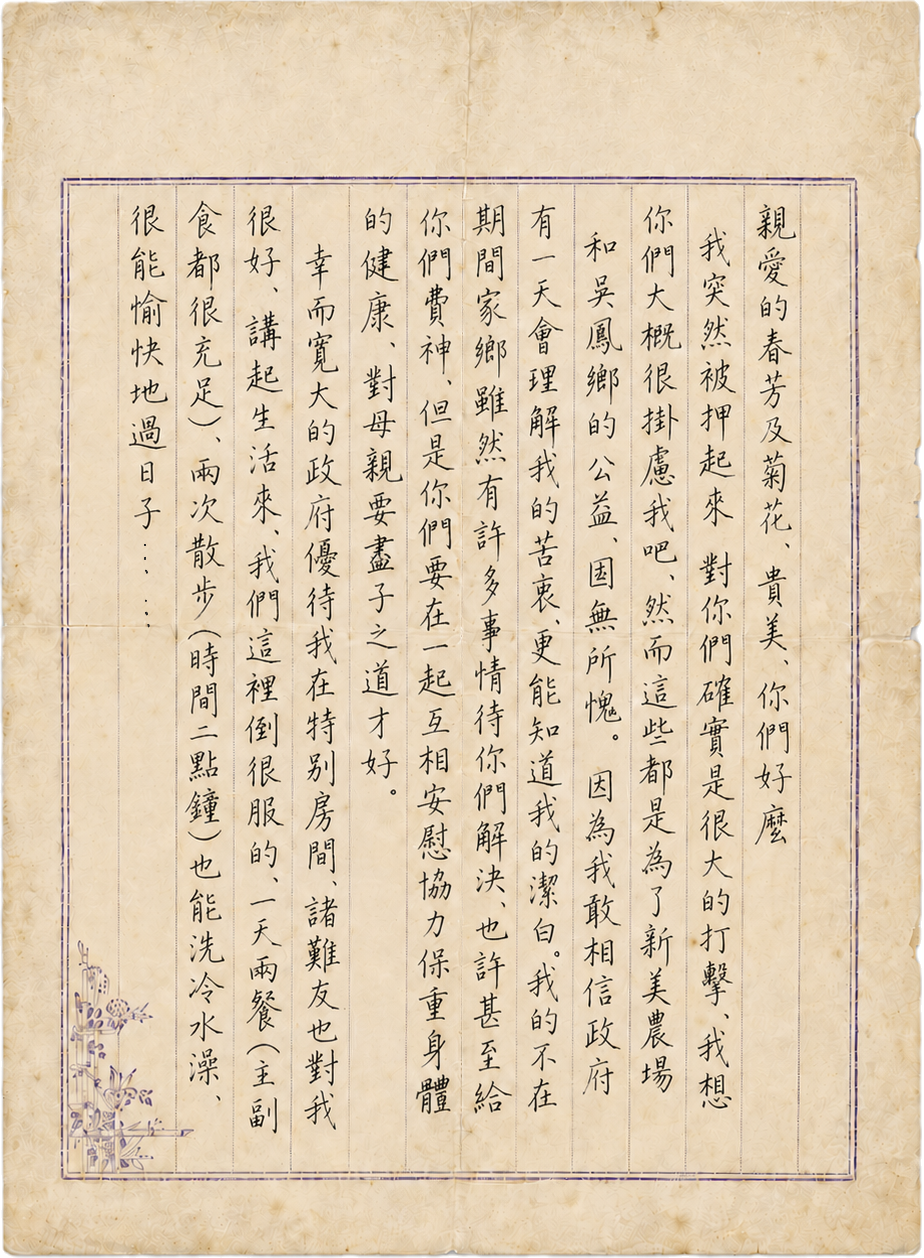 親愛的春芳及菊花、貴美、你們好麼
我突然被押起來 對你們確實是很大的打擊、我想
你們大概很掛慮我吧、然而這些都是為了新美農場
和吳鳳鄉的公益、固無所愧。 因為我敢相信政府
有一天會理解我的苦衷、更能知道我的潔白。我的不在
期間家鄉雖然有許多事情待你們解決、也許甚至給
你們費神、但是你們要在一起互相安慰協力保重身體
的健康、對母親要盡子之道才好。
幸而寬大的政府優待我在特別房間、諸難友也對我
很好、講起生活來、我們這裡倒很服的、一天兩餐(主副
食都很充足)、兩次散步(時間二點鐘)也能洗冷水澡、
很能愉快地過日子……